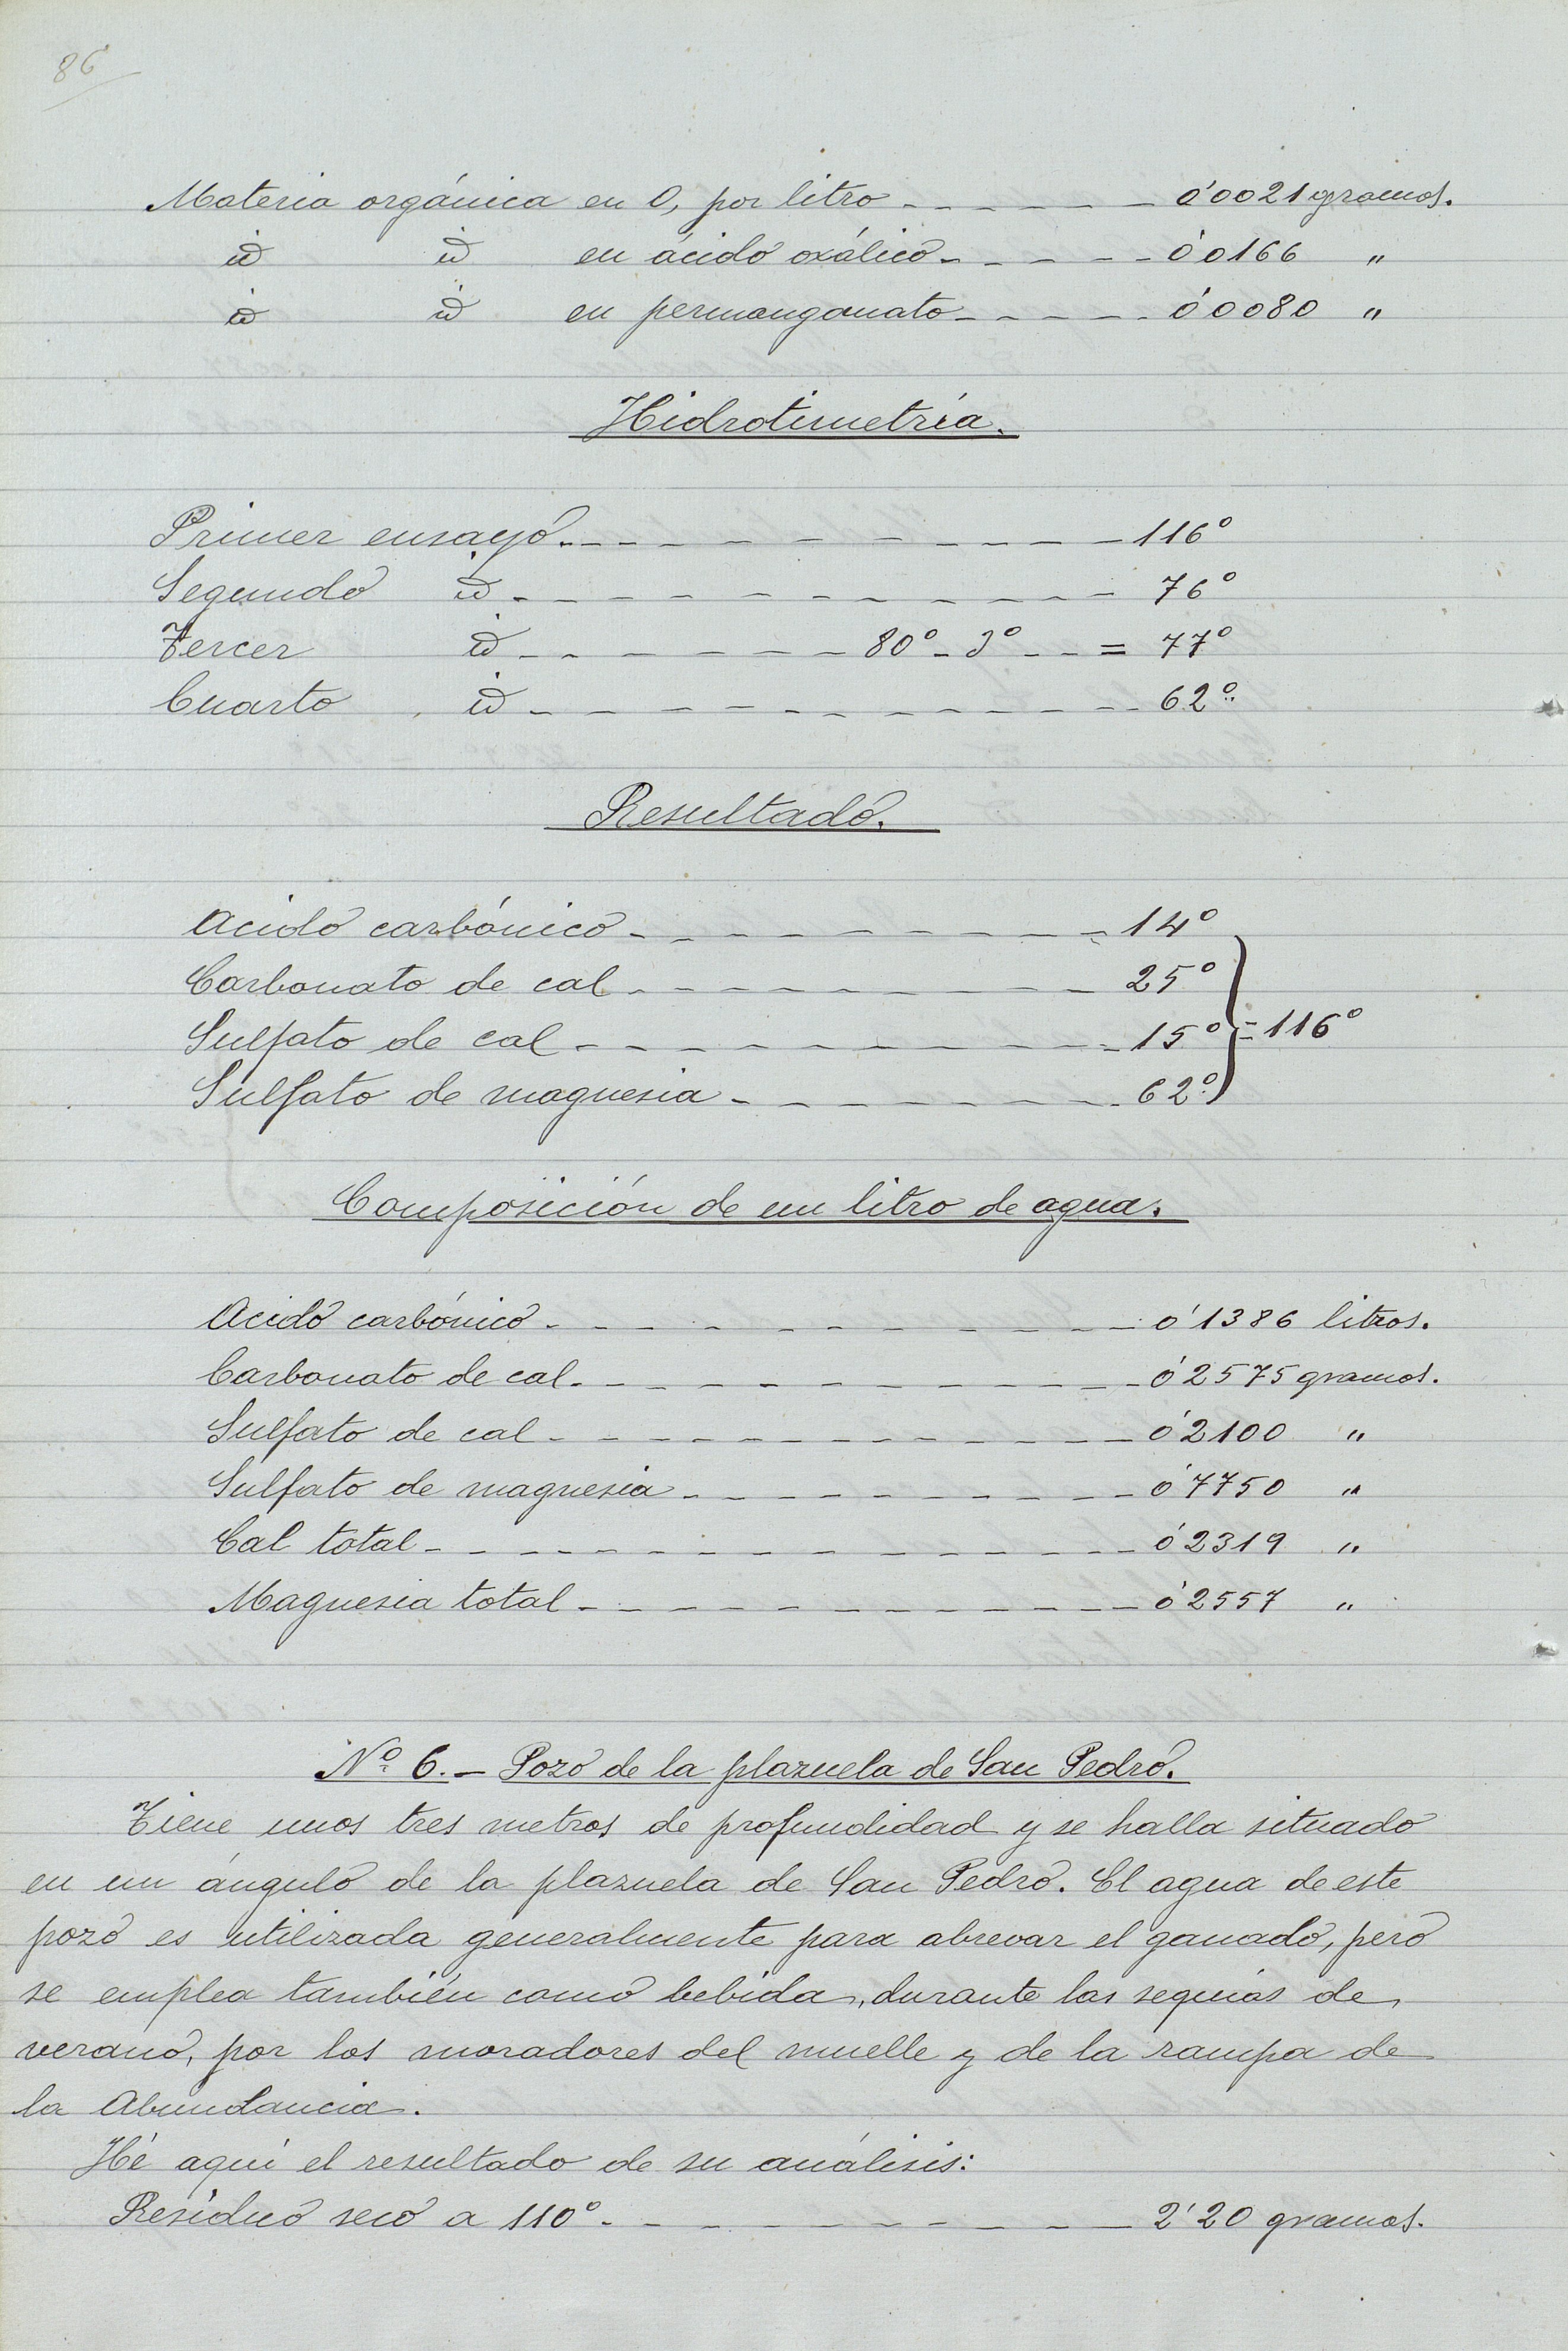 86
Materia orgánica en O, por litro - - - - - - 0'0021 gramos.
id id en ácido oxálico - - - - - 0'0166 "
id id en permanganato - - - - - 0'0080 "
Hidrotimetría.
Primer ensayo. - - - - - - - - - - - 116º
Segundo id - - - - - - - - - - - - 76º
Tercer id - - - - - - - 80º - 3º - - = 77º
Cuarto id - - - - - - - - - - - - 62º
Resultado.
Acido carbónico - - - - - - - - - - 14º
Carbonato de cal - - - - - - - - - - 25º
Sulfato de cal - - - - - - - - - - - 15º = 116º
Sulfato de magnesia - - - - - - - - 62º
Composición de un litro de agua.
Acido carbónico - - - - - - - - - - - 0'1386 litros.
Carbonato de cal - - - - - - - - - - - 0'2575 gramos.
Sulfato de cal - - - - - - - - - - - - 0'2100 "
Sulfato de magnesia - - - - - - - - - 0'7750 "
Cal total - - - - - - - - - - - - - - 0'2319 "
Magnesia total - - - - - - - - - - - - 0'2557 "
Nº 6. - Pozo de la plazuela de San Pedro.
Tiene unos tres metros de profundidad y se halla situado
en un ángulo de la plazuela de San Pedro. El agua de este
pozo es utilizada generalmente para abrevar el ganado, pero
se emplea también como bebida, durante las sequías de
verano, por los moradores del muelle y de la rampa de
la Abundancia.
Hé aquí el resultado de su análisis:
Residuo seco a 110º - - - - - - - - - - - 2'20 gramos.